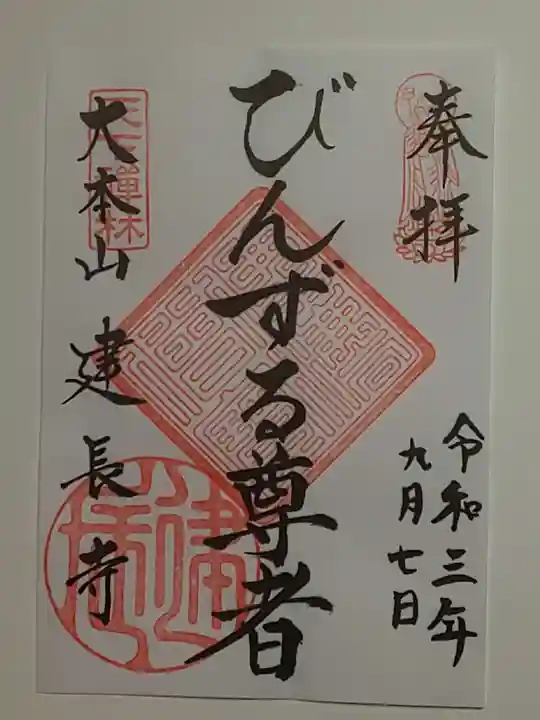 奉拝
令和三年
九月七日
びんずる尊者
大本山建長寺
天下禅林